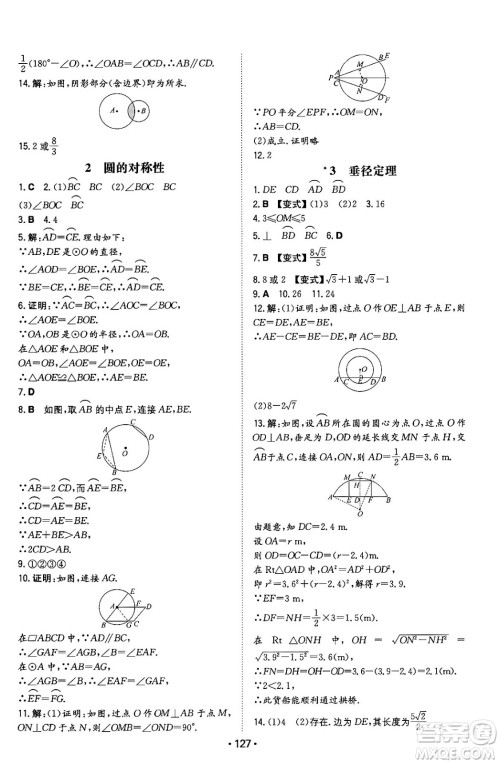 1/2(180°－∠O),∴∠OAB=∠OCD,∴AB∥CD.
14.解:如图,阴影部分(含边界)即为所求.
A B
15.2 或 8/3
2 圆的对称性
1.C 2.(1)⌒BC BC ⌒BC
(3)⌒BC BC
3.B 4.4
5.解:⌒AD=⌒CE.理由如下:
∵AB,DE是⊙O的直径,
∴∠AOD=∠BOE,∴⌒AD=⌒BE.
∵BE=CE,∴⌒BE=⌒CE,∴⌒AD=⌒CE.
6.证明:∵⌒AC=⌒BC,∴∠AOC=∠BOC.
∵OA,OB是⊙O的半径,
OA=OB,∠AOE=∠BOE,OE=OE,
∴△AOE≌△BOE,∴AE=BE.
7.D
8.B 如图,取⌒AB的中点E,连接AE,BE.
∵⌒AB=2⌒CD,∴⌒AE=⌒BE=⌒CD,
∴AE=BE=CD.
∵AE+BE>AB,
∴2CD>AB.
9.①③④
10.证明:如图,连接AG.
在□ABCD中,AD∥BC,
∴∠GAF=∠AGB,∠EAF=∠B.
在⊙A中,AB=AG,∴∠B=∠AGB,
∴∠GAF=∠EAF,∴⌒GF=⌒EF.
11.解:(1)证明:如图,作OM⊥AB于点M,
ON⊥CD于点N,则∠OMB=∠OND=90°.
∵PO平分∠EPF,∴OM=ON,
∴AB=CD.
(2)成立.证明略
12.2
*3 垂径定理
1.DE CD ⌒AD ⌒BD
2.B 【变式】(1)3 (2)2 3.16
4.3≤OM≤5
5.⊥ ⌒BD ⌒BC 6.D
7.B 【变式】8√5/5
8.8或2 【变式】√3+1或√3－1
9.A 10.26 11.24
12.解:(1)证明:如图,过点O作OE⊥AB于点E,
则CE=DE,AE=BE,
∴AE－CE=BE－DE,即AC=BD.
(2)8－2√7
13.解:如图,设⌒AB所在圆的圆心为点O,作
OD⊥AB,垂足为点D,OD的延长线交
⌒AB于点C,连接OA,则AD=1/2AB=3.6 m.
由题意,可知CD=2.4 m.
设OA=r m,
则OD=OC－DC=(r－2.4) m.
在Rt△AOD中,OA²=AD²+OD²,
即r²=3.6²+(r－2.4)²,∴r=3.9.
∵EF=3 m,
∴HN=1/2EF=1.5 m.
又在Rt△ONH中,OH=√(ON²－HN²)
=√(3.9²－1.5²)=3.6(m),
∴FN=DH=OH－OD=2.1(m).
∵2<2.1,
∴此货船能顺利拱桥.
14.(1)4 (2)存在.边为DE,长度为5√2/2
·127·